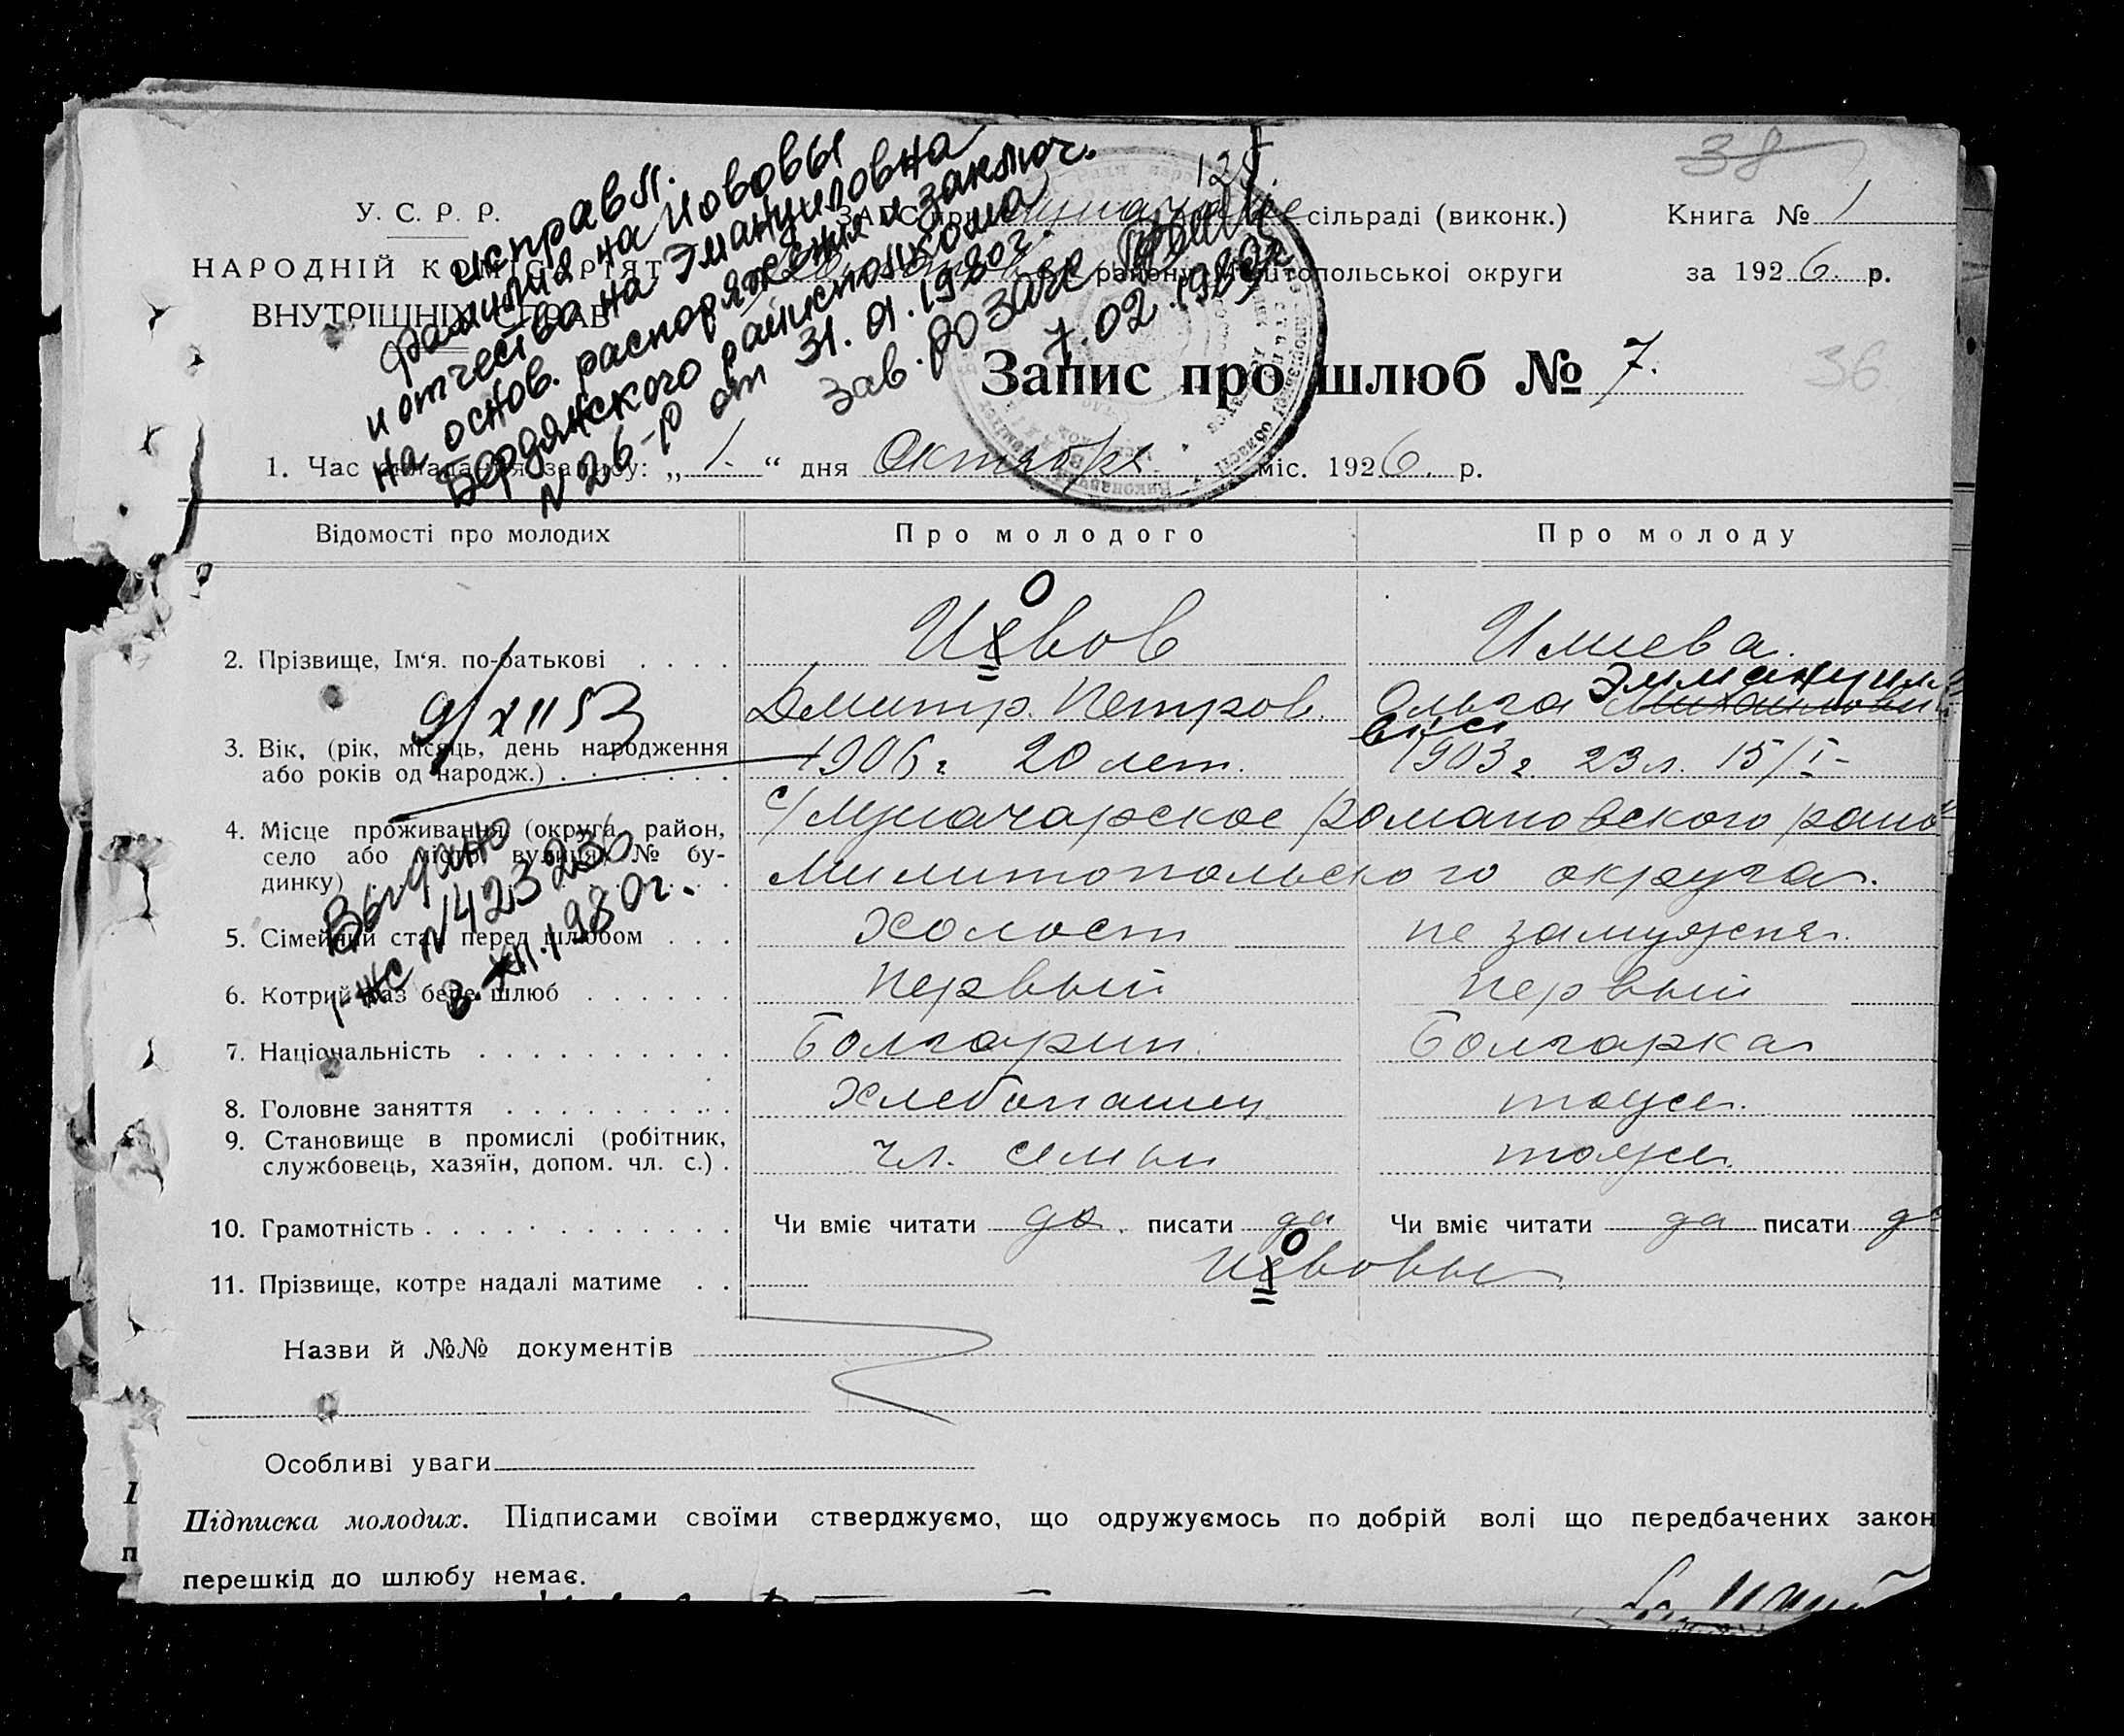 исправл.
фамилия на Иововы
и отчество на Эмануиловна
на основ. распоряжения и заключ.
Бердянского райисполкома
N 26-р от 31.01.1980г.
зав. РОЗАГС
7.02.1980г
125.
38
У. С. Р. Р.
НАРОДНІЙ КОМІСАРІЯТ
ВНУТРІШНІХ СПРАВ
ЗАГС при сільраді (виконк.)
району Мелітопольської округи
Книга № 1
за 1926 р.
Запис про шлюб № 7.
36
1. Час складання запису: „1.“ дня Октября міс. 1926. р.
Відомості про молодих Про молодого Про молоду
2. Прізвище, Ім'я. по-батькові . . . . Иевов Илиева.
О
Дмитр. Петров. Ольга Михайловн
Эммануил
вна
9/XII 53
3. Вік, (рік, місяць, день народження
або років од народж.) . . . . . . . 1906 г 20 лет. 1903 г. 23 л. 15/I-
4. Місце проживання (округа, район,
село або місто, вулиця, № бу-
динку)
с/ Луначарское Романовского рай
Милитопольского округа.
Выдано
I-ЖС N 423236
3.XII.1980г.
5. Сімейний стан перед шлюбом . . . Холост не замужня.
6. Котрий раз бере шлюб . . . . . . первый первый
7. Національність . . . . . . . . . . Болгарин. Болгарка
8. Головне заняття . . . . . . . . . Хлебопашец тоже.
9. Становище в промислі (робітник,
службовець, хазяїн, допом. чл. с.) . чл. семьи тоже.
10. Грамотність . . . . . . . . . . . Чи вміє читати да писати да Чи вміє читати да писати да
11. Прізвище, котре надалі матиме . . Иевовы
О
Назви й №№ документів
Особливі уваги
Підписка молодих. Підписами своїми стверджуємо, що одружуємось по добрій волі що передбачених закон
перешкід до шлюбу немає.